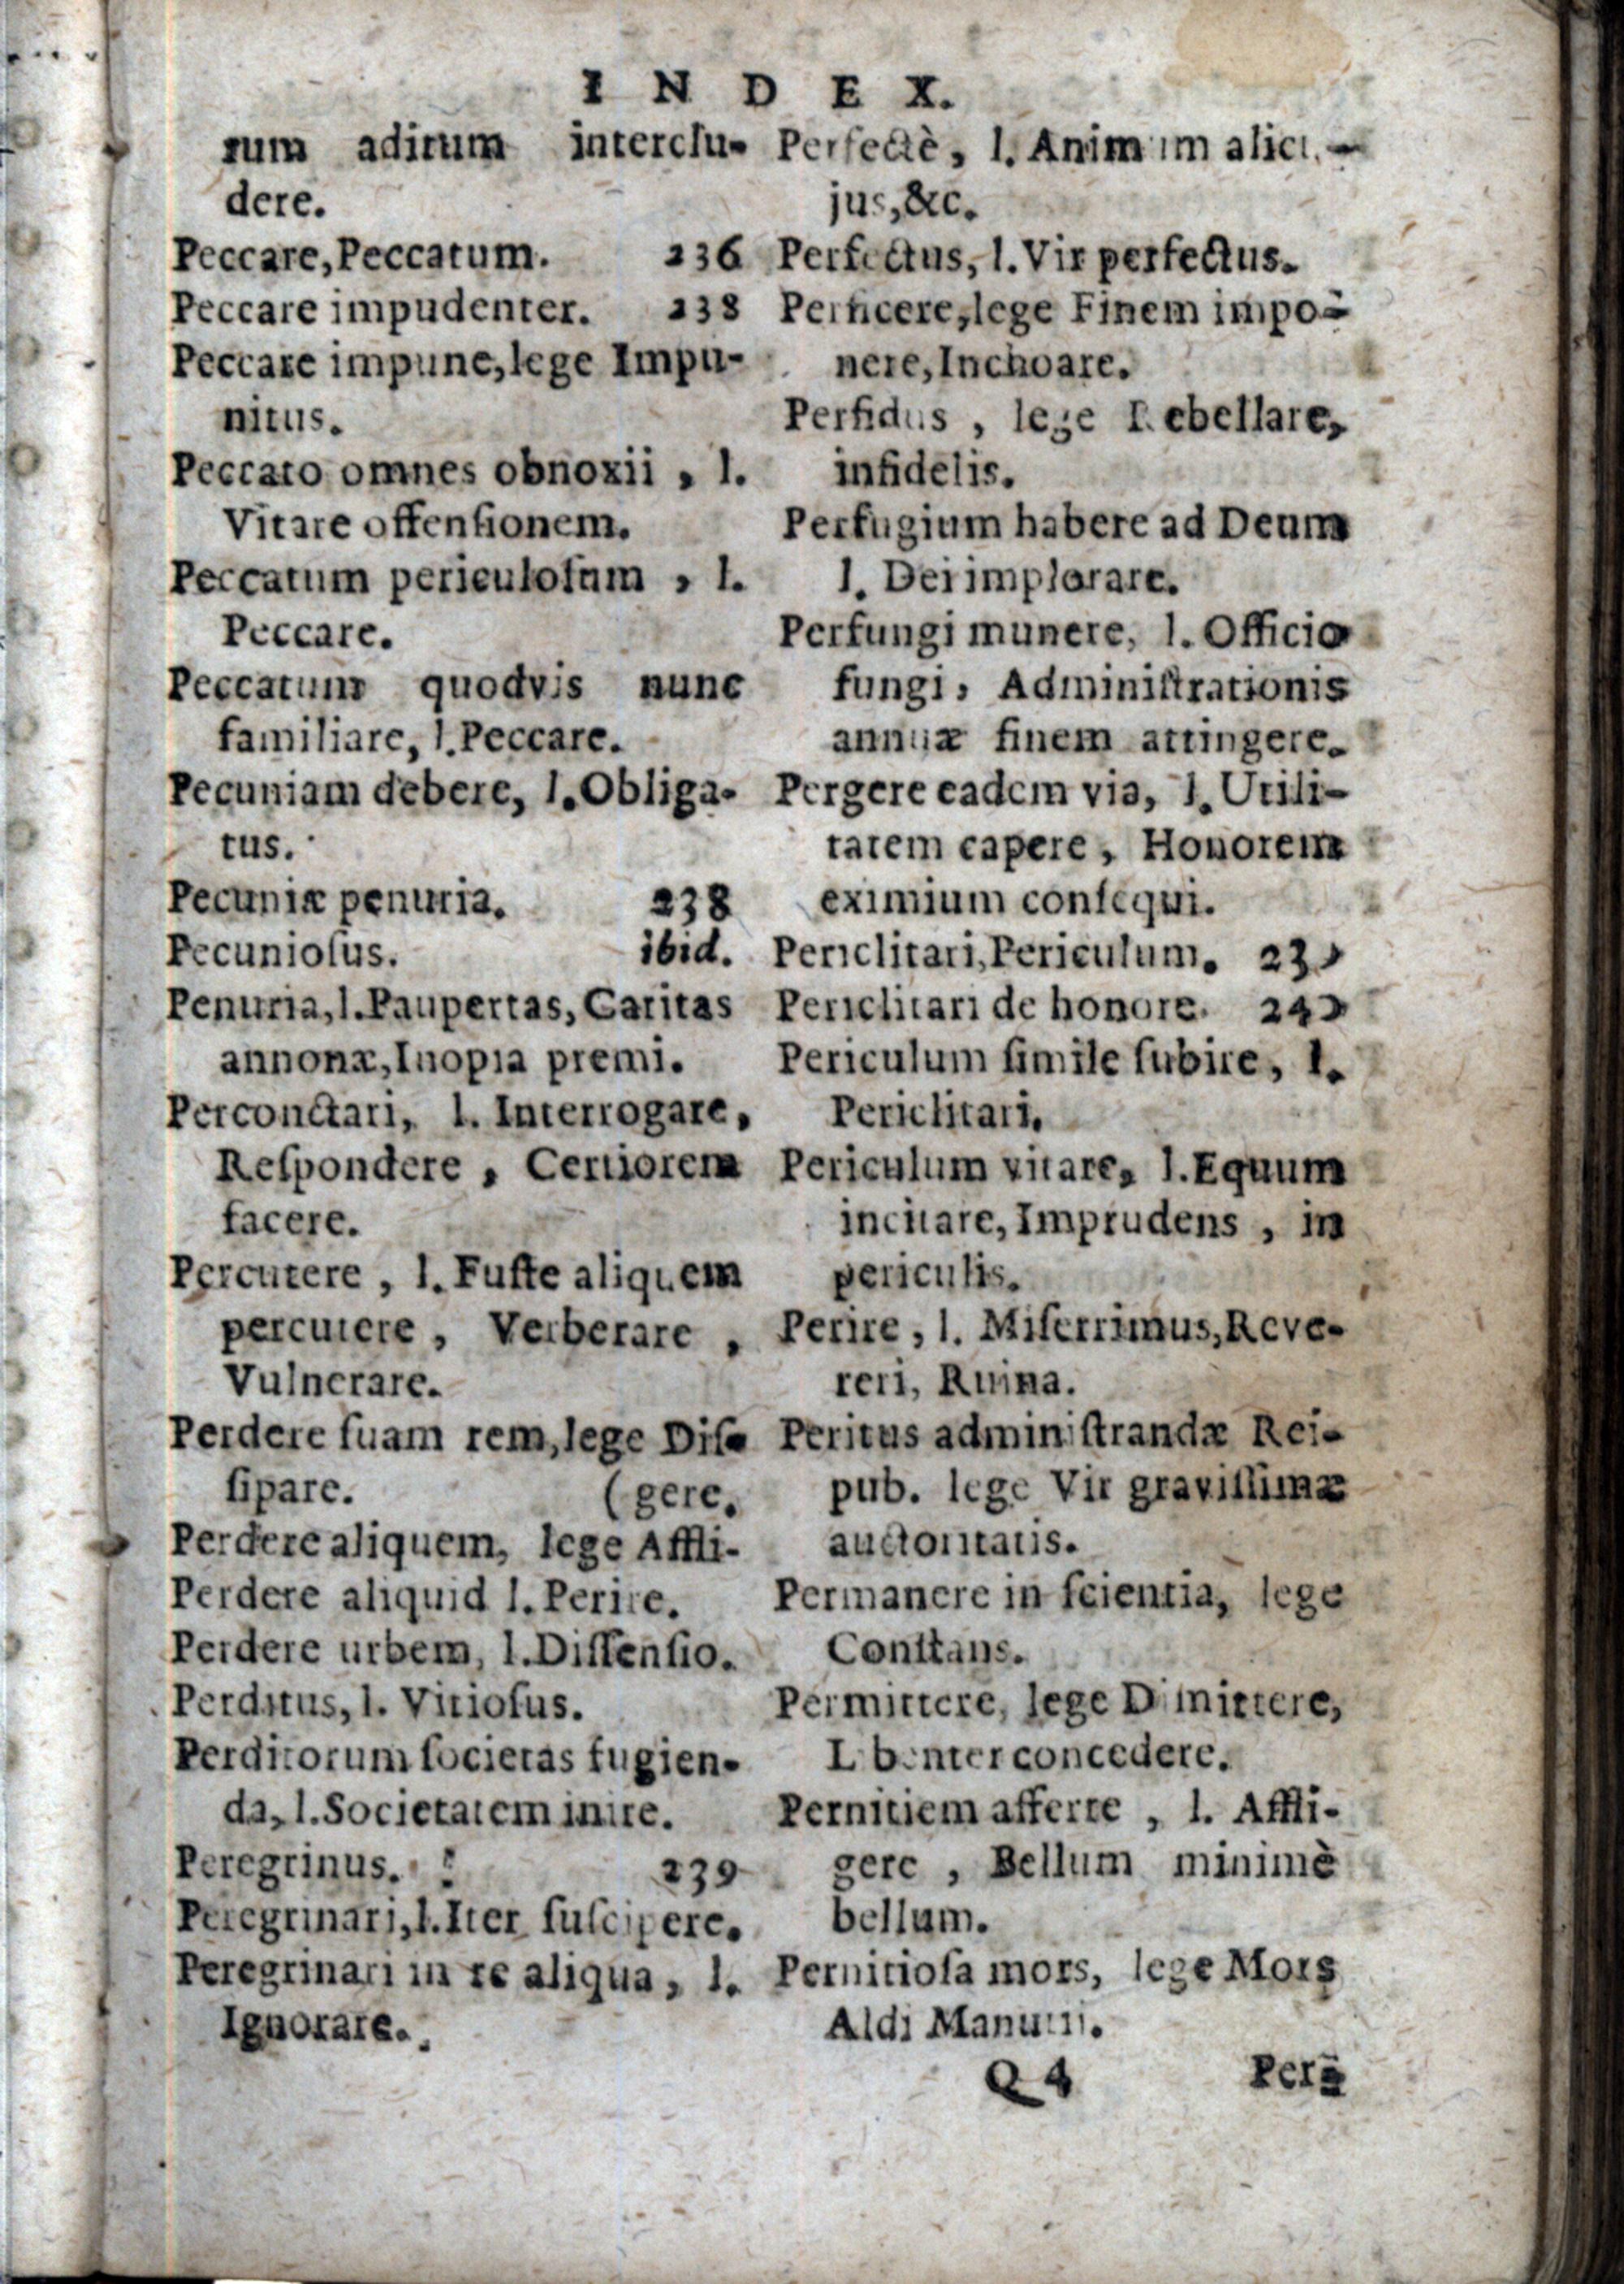 INDEX.
rum aditum interclu-
dere.
Peccare, Peccatum. 236
Peccare impudenter. 238
Peccare impune, lege Impu-
nitus.
Peccato omnes obnoxii, l.
Vitare offenſionem.
Peccatum periculoſum, l.
Peccare.
Peccatum quodvis nunc
familiare, l. Peccare.
Pecuniam debere, l. Obliga-
tus.
Pecuniæ penuria. 238
Pecunioſus. ibid.
Penuria, l. Paupertas, Caritas
annonæ, Inopia premi.
Perconctari, l. Interrogare,
Reſpondere, Certiorem
facere.
Percutere, l. Fuſte aliquem
percutere, Verberare,
Vulnerare.
Perdere ſuam rem, lege Diſ-
ſipare. (gere.
Perdere aliquem, lege Affli-
Perdere aliquid l. Perire.
Perdere urbem, l. Diſſenſio.
Perditus, l. Vitioſus.
Perditorum ſocietas fugien-
da, l. Societatem inire.
Peregrinus. 239
Peregrinari, l. Iter ſuſcipere.
Peregrinari in re aliqua, l.
Ignorare.
Perfectè, l. Animum alicu-
jus, &c.
Perfectus, l. Vir perfectus.
Perficere, lege Finem impo-
nere, Inchoare.
Perfidus, lege Rebellare,
infidelis.
Perfugium habere ad Deum
l. Dei implorare.
Perfungi munere, l. Officio
fungi, Adminiſtrationis
annuæ finem attingere.
Pergere eadem via, l. Utili-
tatem capere, Honorem
eximium conſequi.
Periclitari, Periculum.
Periclitari de honore.
Periculum ſimile ſubire, l.
Periclitari.
Periculum vitare, l. Equum
incitare, Imprudens, in
periculis.
Perire, l. Miſerrimus, Reve-
reri, Ruina.
Peritus adminiſtrandæ Rei-
pub. lege Vir graviſſimæ
auctoritatis.
Permanere in ſcientia, lege
Conſtans.
Permittere, lege Dimittere,
Libenter concedere.
Pernitiem afferre, l. Affli-
gere, Bellum minimè
bellum.
Pernitioſa mors, lege Mors
Aldi Manutii.
Q 4 Per-